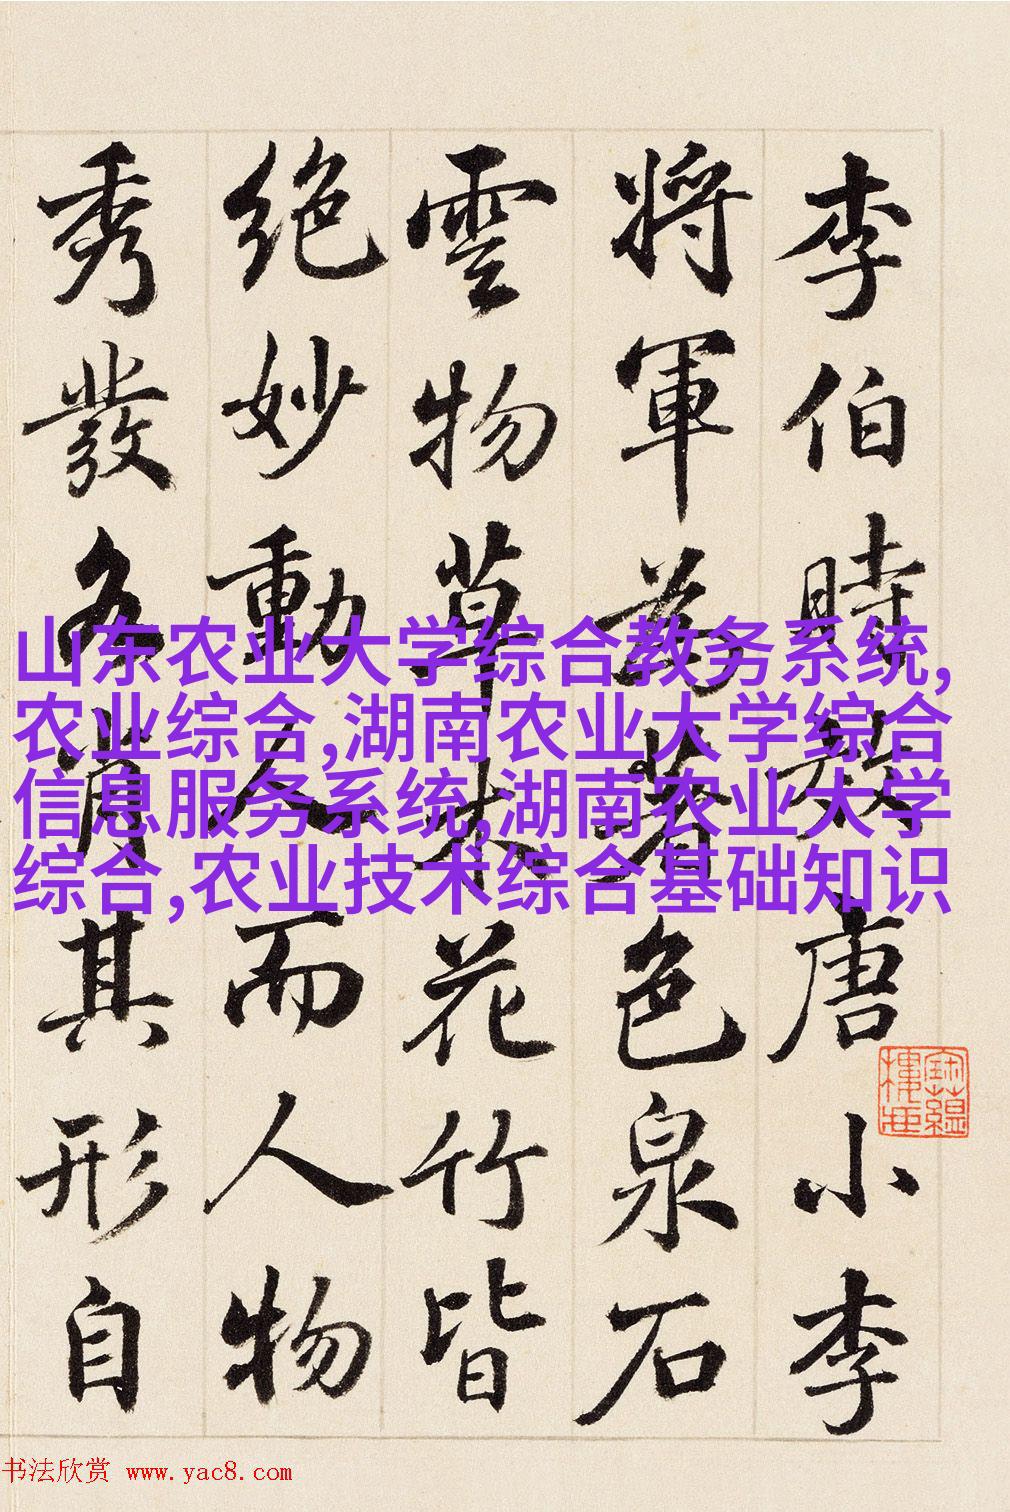 李伯時效唐小李
將軍為著色泉石
雲物草木花竹皆
絕妙動人而人物
秀發各肖其形自
山东农业大学综合教务系统,
农业综合,湖南农业大学综合
信息服务系统,湖南农业大学
综合,农业技术综合基础知识
书法欣赏 www.yac8.com